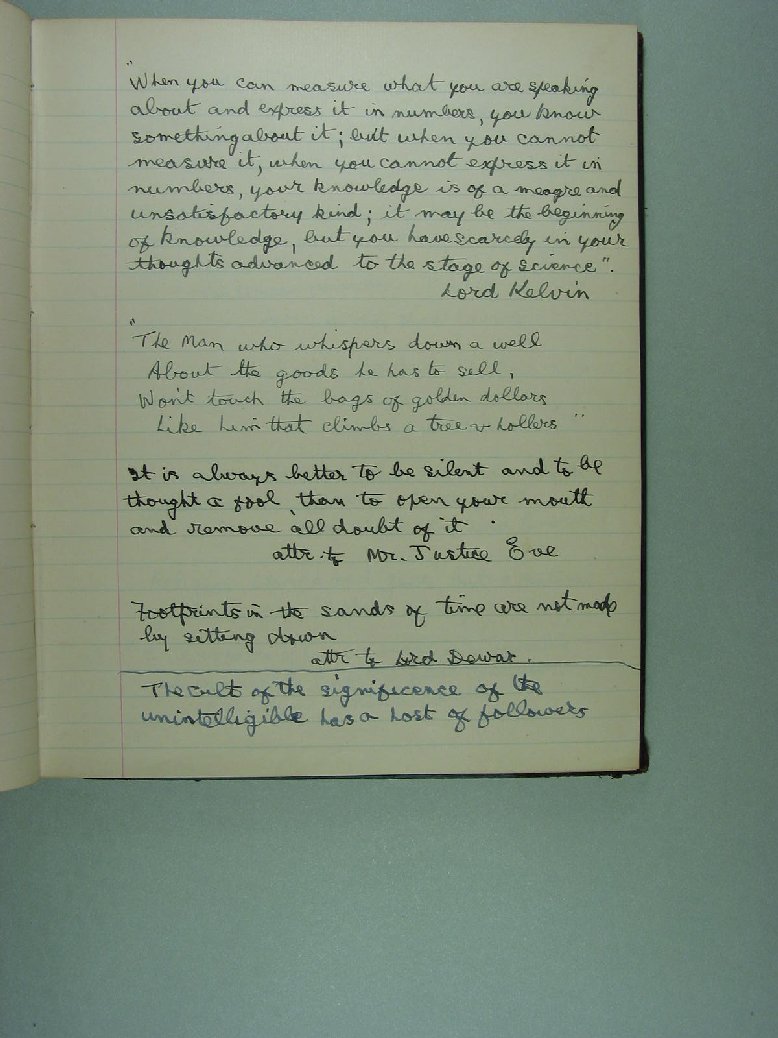 "When you can measure what you are speaking
about and express it in numbers, you know
something about it; but when you cannot
measure it, when you cannot express it in
numbers, your knowledge is of a meagre and
unsatisfactory kind; it may be the beginning
of knowledge, but you have scarcely in your
thoughts advanced to the stage of science".
Lord Kelvin
"The Man who whispers down a well
About the goods he has to sell,
Won't touch the bags of golden dollars
Like him that climbs a tree & hollers"
It is always better to be silent and to be
thought a fool, than to open your mouth
and remove all doubt of it.
attr. to Mr. Justice Eve
Footprints in the sands of time are not made
by sitting down
attr to Lord Dewar.
The cult of the significence of the
unintelligible has a host of followers